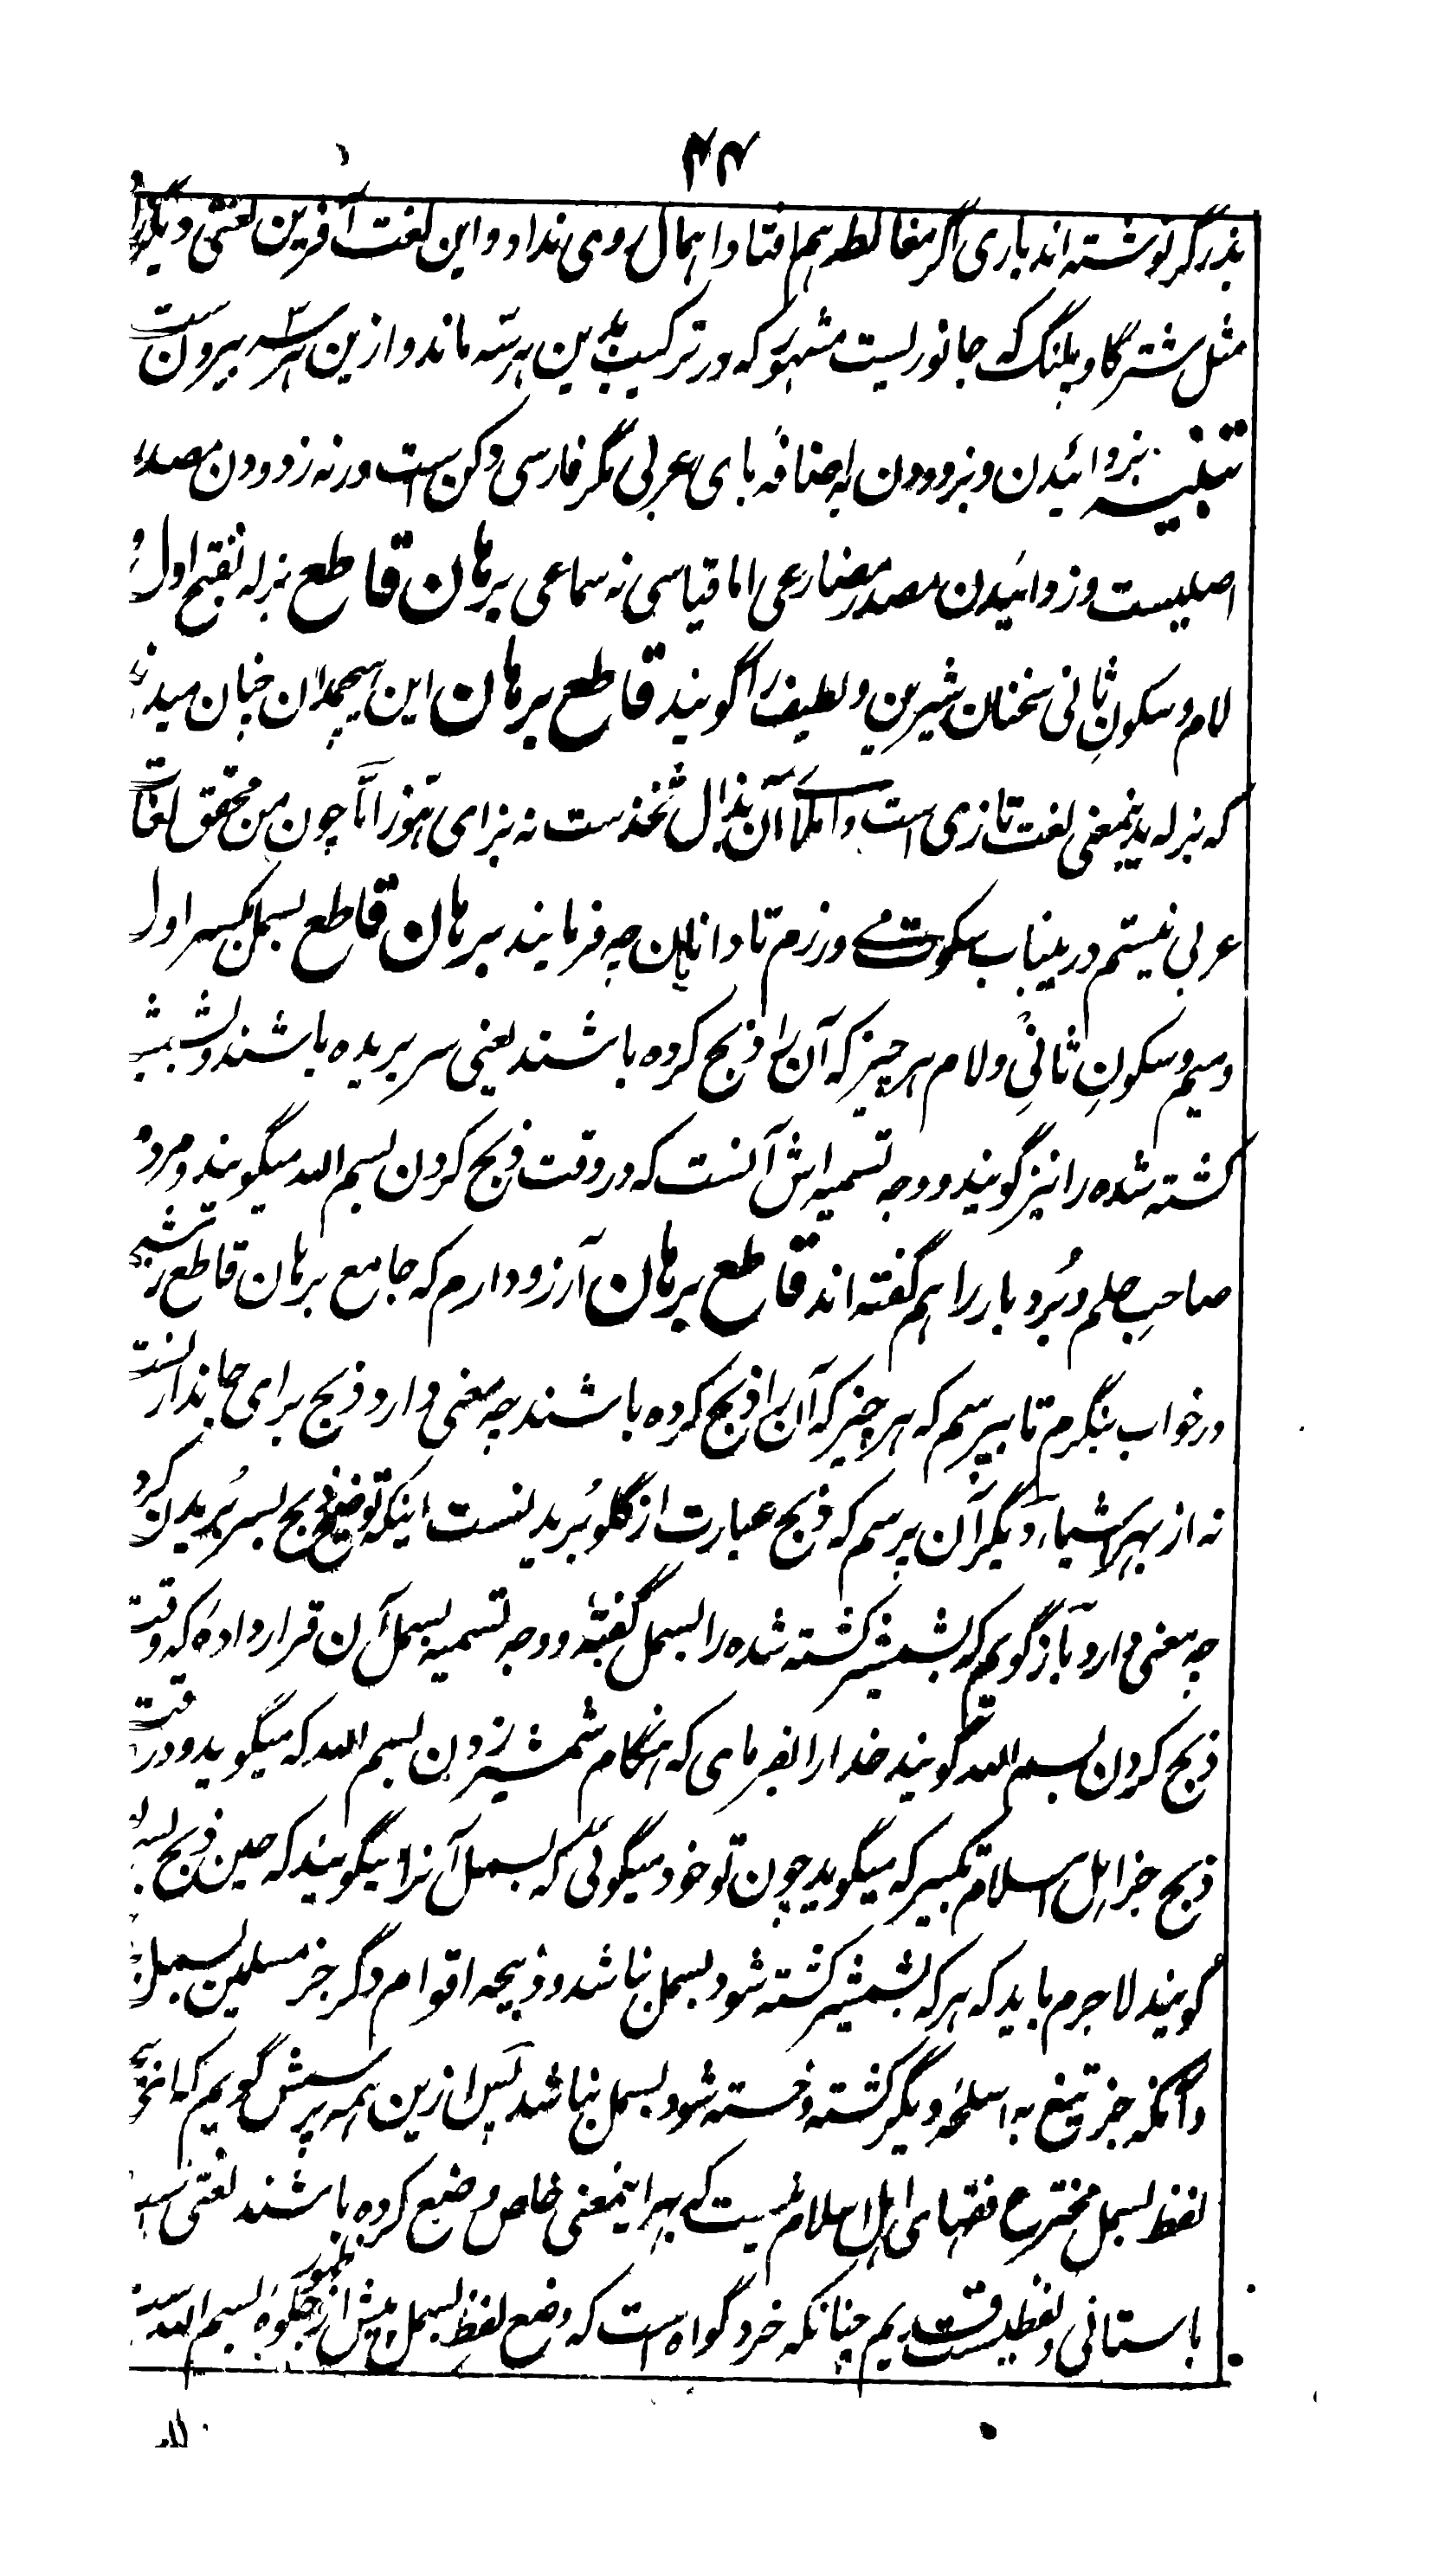 ۴۴
بذرگر نوشته اند باری اگر مغالطه هم افتاد اهمال روی نداد و این لغت آفرین لغتی دیگر
مثل شتر گاو پلنگ که جانوریست مشهور که در ترکیب بدین هر سه ماند و ازین هر سه بیرون ست
تنبیه بزوائیدن و بزدودن به اضافهٔ بای عربی مگر فارسی دکن ست ورنه زدودن مصدر
اصلیست و زدائیدن مصدر مضارعی اما قیاسی نه سماعی برهان قاطع بزله بفتح اول و
لام و سکونِ ثانی سخنان شیرین و لطیف را گویند قاطع برهان این هیچمدان چنان میداند
که بزله بدینمعنی لغت تازی است و املای آن بذال ثخذست نه بزای هوز امّا چون من محقق لغات
عربی نیستم درینباب سکوت می ورزم تا دانایان چه فرمایند برهان قاطع بسمل بکسر اول
و میم و سکونِ ثانیِ و لام هر چیز که آن را ذبح کرده باشند یعنی سر بریده باشند و بشمشیر
کشته شده را نیز گویند و وجه تسمیه اش آنست که در وقت ذبح کردن بسم الله میگویند و مردم
صاحبِ حلم و بُردبار را هم گفته اند قاطع برهان آرزو دارم که جامع برهان قاطع را شبی
در خواب بنگرم تا بپرسم که هر چیز که آن را ذبح کرده باشند چه معنی دارد ذبح برای جاندارانست
نه از بهر اشیاء دیگر آن پرسم که ذبح عبارت از گلو بُریدنست اینکه توضیح ذبح بسر بُریدن کرد
چه معنی دارد باز گویم که بشمشیر کشته شده را بسمل گفتهٔ و وجه تسمیه بسمل آن قرار دادهٔ که وقت
ذبح کردن بسم الله گویند خدا را بفرمای که هنگام شمشیر زدن بسم الله که میگوید و در وقت
ذبح جز اهل اسلام تکبیر که میگوید چون تو خود میگوئی که بسمل آنرا میگویند که حین ذبح بسم الله
گویند لاجرم باید که هر که بشمشیر کشته شود بسمل نباشد و ذبیحه اقوام دگر جز مسلمین بسمل
و آنکه جز تیغ به اسلحهٔ دیگر کشته و خسته شود بسمل نباشد پس ازین همه پرسش گویم که
لفظ بسمل مخترع فقهای اهل اسلام نیست که بهر اینمعنی خاص وضع کرده باشند لغتی ست
باستانی و لفظیست قدیم چنانکه خرد گواه است که وضع لفظِ بسمل پیش از ظهور جلوهٔ بسم الله